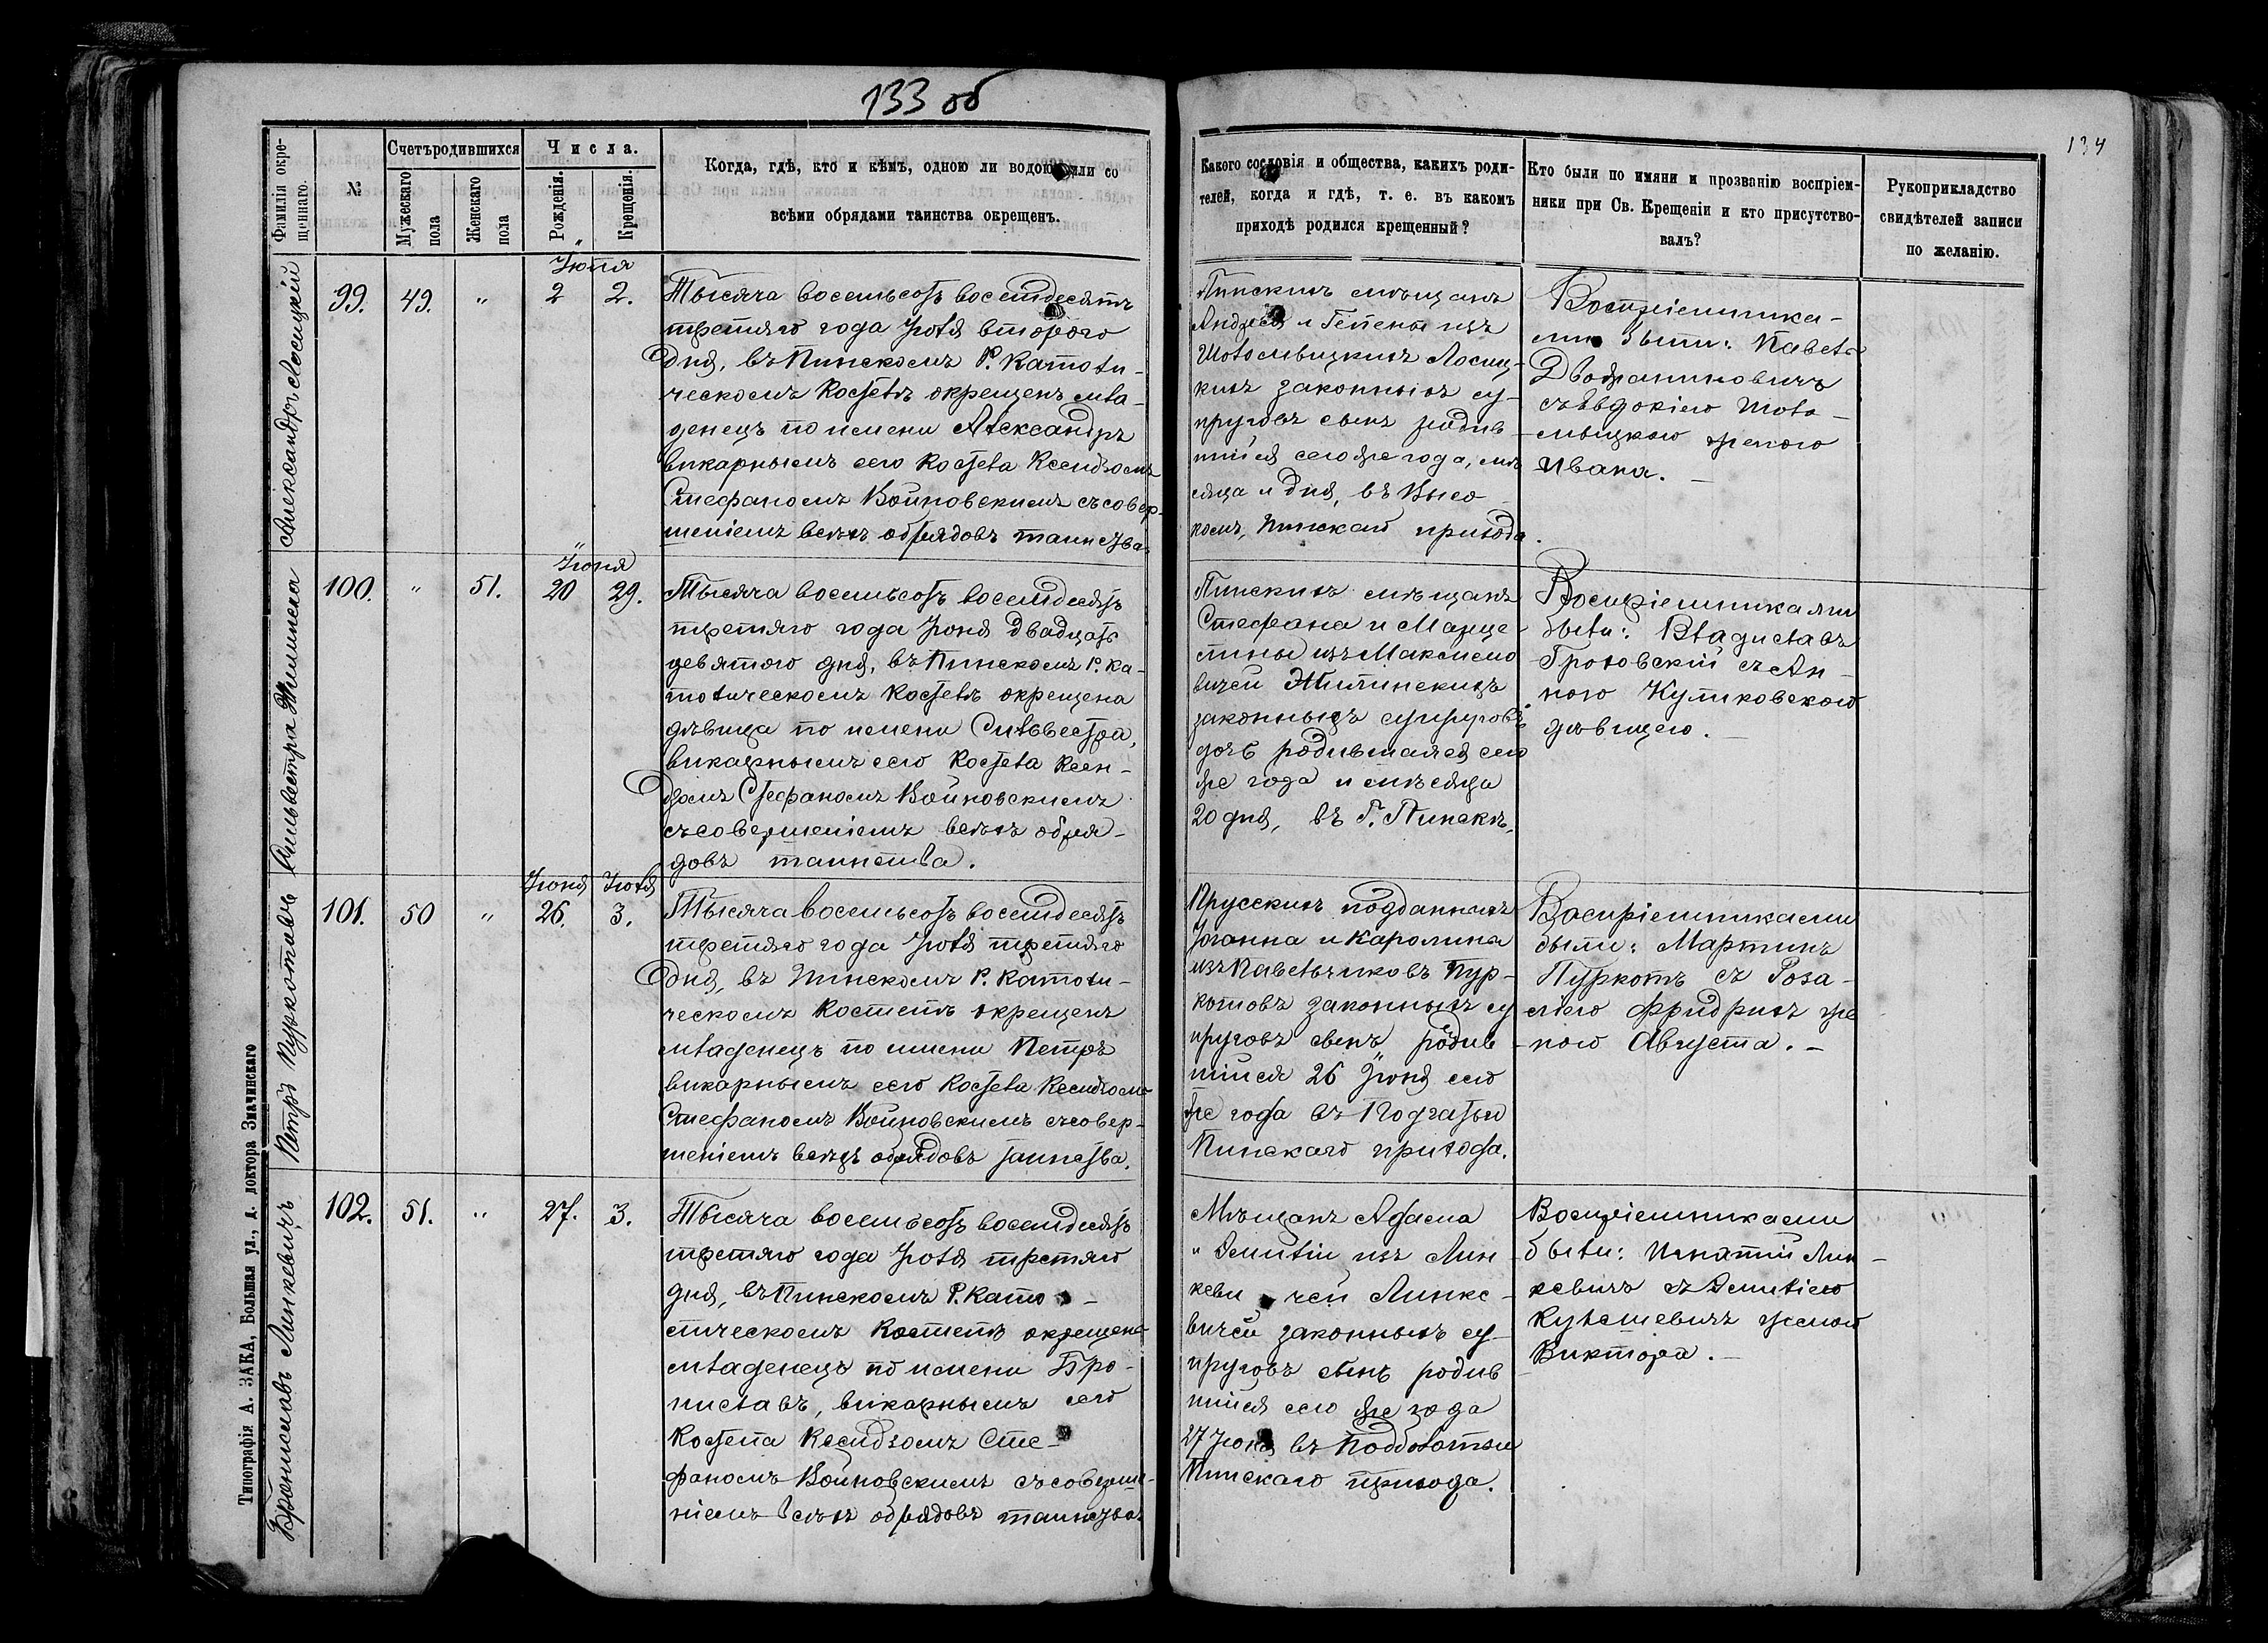 133 об
134
Фамилія окре-
щеннаго.
№
Счетъ родившихся
Мужескаго
пола
Женскаго
пола
Числа.
Рожденія.
Крещенія.
Когда, гдѣ, кто и кѣмъ, одною ли водою или со
всѣми обрядами таинства окрещенъ.
Какого сословія и общества, какихъ роди-
телей, когда и гдѣ, т. е. въ какомъ
приходѣ родился крещенный?
Кто были по имяни и прозванію воспріем-
ники при Св. Крещеніи и кто присутство-
валъ?
Рукоприкладство
свидѣтелей записи
по желанію.
Александръ Лосицкій
99. 49. „
Іюля
2 2.
Тысяча восемьсотъ восемдесятъ
третяго года Іюля второго
дня, въ Пинскомъ Р. Католи-
ческомъ Костелѣ окрещенъ мла-
денецъ по имени Александръ
викарнымъ сего Костела Ксендзомъ
Стефаномъ Войновскимъ съ совер-
шеніемъ всѣхъ обрядовъ таинства
Пинскихъ мѣщанъ
Андрея и Гелены изъ
Шоломицкихъ Лосиц-
кихъ законныхъ су-
пруговъ сынъ родив-
шійся сего же года, мѣ
сяца и дня, въ Высо
комъ, Пинской прихода.
Воспріемника-
ми были: Павелъ
Дворяниновичъ
съ Евдокіею Шоло-
мицкою женою
Ивана. —
Сильвестра Жилинска
100. „ 51.
Іюня
20 29.
Тысяча восемьсотъ восемдесятъ
третяго года Іюня двадцать
девятого дня, въ Пинскомъ Р. Ка-
толическомъ Костелѣ окрещена
дѣвица по имени Сильвестра,
викарнымъ сего Костела Ксен-
дзомъ Стефаномъ Войновскимъ
съ совершеніемъ всѣхъ обря-
довъ таинства.
Пинскихъ мѣщанъ
Стефана и Марце-
лины изъ Максимо
вичей Жилинскихъ
законныхъ супруговъ
дочь родившаяся сего
же года и мѣсяца
20 дня, въ Г. Пинскѣ.
Воспріемниками
были: Владиславъ
Гроховскій съ Ан-
ною Куликовскою
дѣвицею. —
Петръ Пуркотавъ
101. 50 „
Іюня Іюля
26. 3.
Тысяча восемьсотъ восемдесятъ
третяго года Іюля третяго
дня, въ Пинскомъ Р. Католи-
ческомъ Костелѣ окрещенъ
младенецъ по имени Петръ
викарнымъ сего Костела Ксендзомъ
Стефаномъ Войновскимъ съ совер-
шеніемъ всѣхъ обрядовъ таинства.
Прусскихъ подданныхъ
Іоганна и Каролина
изъ Павельчиковъ Пур-
котовъ законныхъ су
пруговъ сынъ родив-
шійся 26 Іюня сего
же года въ Подгатьи
Пинскаго прихода.
Воспріемниками
были: Мартинъ
Пуркотъ съ Роза-
ліею Фридрихъ же
ною Августа. —
Брониславъ Линкевичъ
102. 51. „
27. 3.
Тысяча восемьсотъ восемдесятъ
третяго года Іюля третяго
дня, въ Пинскомъ Р. Като-
лическомъ Костелѣ окрещенъ
младенецъ по имени Бро-
ниславъ, викарнымъ сего
Костела Ксендзомъ Сте-
фаномъ Войновскимъ съ соверше-
ніемъ всѣхъ обрядовъ таинства
Мѣщанъ Адама
и Эмиліи изъ Лин-
кевичей Линке-
вичей законныхъ су-
пруговъ сынъ родив
шійся сего же года
27 Іюня въ Подболотьи
Пинскаго прихода.
Воспріемниками
были: Игнатій Лин-
кевичъ съ Эмиліею
Кульшевичъ женою
Виктора. —
Типографія А. ЗАКА, Большая ул., д. доктора Значинскаго